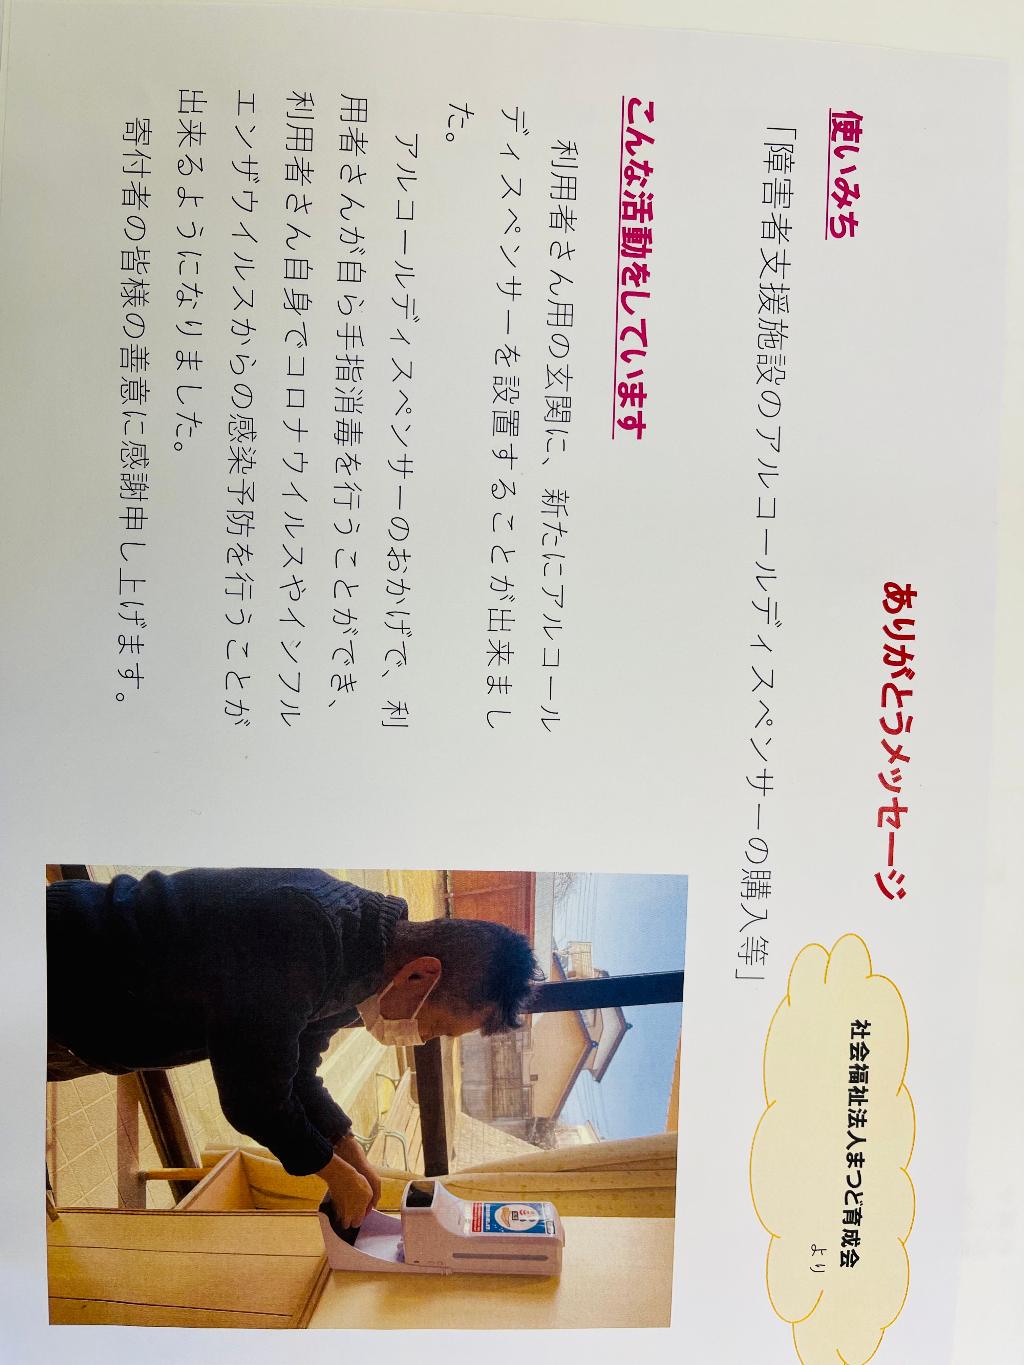 ありがとうメッセージ
社会福祉法人まつど育成会
より
使いみち
「障害者支援施設のアルコールディスペンサーの購入等」
こんな活動をしています
利用者さん用の玄関に、新たにアルコール
ディスペンサーを設置することが出来まし
た。
アルコールディスペンサーのおかげで、利
用者さんが自ら手指消毒を行うことができ、
利用者さん自身でコロナウイルスやインフル
エンザウイルスからの感染予防を行うことが
出来るようになりました。
寄付者の皆様の善意に感謝申し上げます。